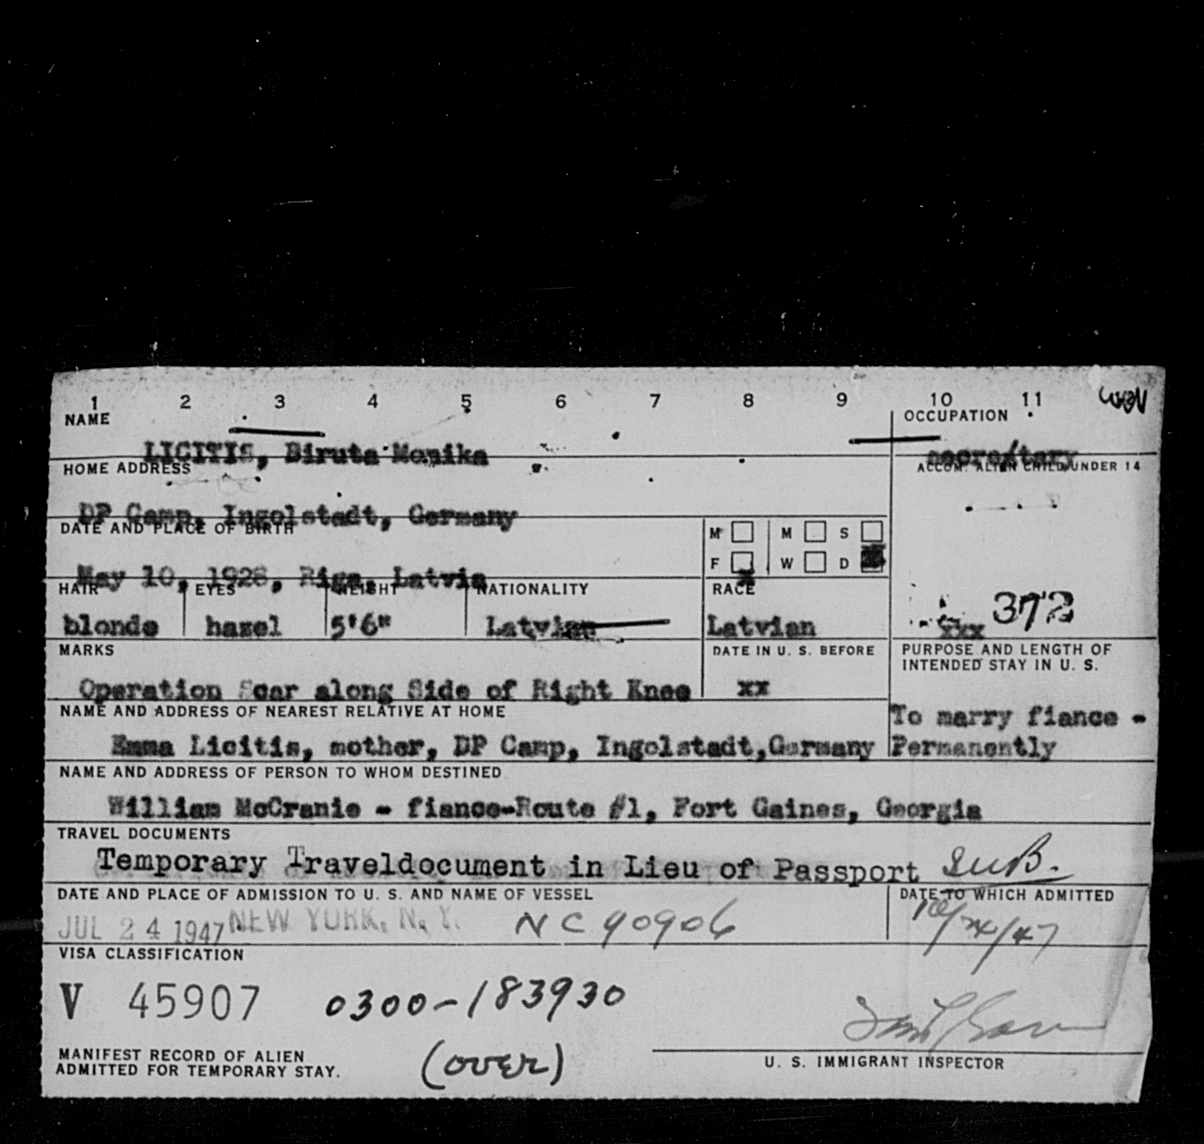 1 2 3 4 5 6 7 8 9 10 11
NAME OCCUPATION
LICITIS, Biruta Monika secretary
HOME ADDRESS ACCOM. ALIEN CHILD UNDER 14
DP Camp, Ingolstadt, Germany
DATE AND PLACE OF BIRTH M M S
F W D
May 10, 1928, Riga, Latvia
HAIR EYES HEIGHT NATIONALITY RACE
372
xxx
blonde hazel 5'6" Latvian Latvian
MARKS DATE IN U. S. BEFORE PURPOSE AND LENGTH OF
INTENDED STAY IN U. S.
Operation Scar along Side of Right Knee xx
NAME AND ADDRESS OF NEAREST RELATIVE AT HOME To marry fiance -
Emma Licitis, mother, DP Camp, Ingolstadt, Germany Permanently
NAME AND ADDRESS OF PERSON TO WHOM DESTINED
William McCranie - fiance-Route #1, Fort Gaines, Georgia
TRAVEL DOCUMENTS
Temporary Traveldocument in Lieu of Passport
DATE AND PLACE OF ADMISSION TO U. S. AND NAME OF VESSEL DATE TO WHICH ADMITTED
JUL 24 1947 NEW YORK, N. Y. NC 90906 10/24/47
VISA CLASSIFICATION
V 45907 0300-183930
MANIFEST RECORD OF ALIEN
ADMITTED FOR TEMPORARY STAY. (over) U. S. IMMIGRANT INSPECTOR